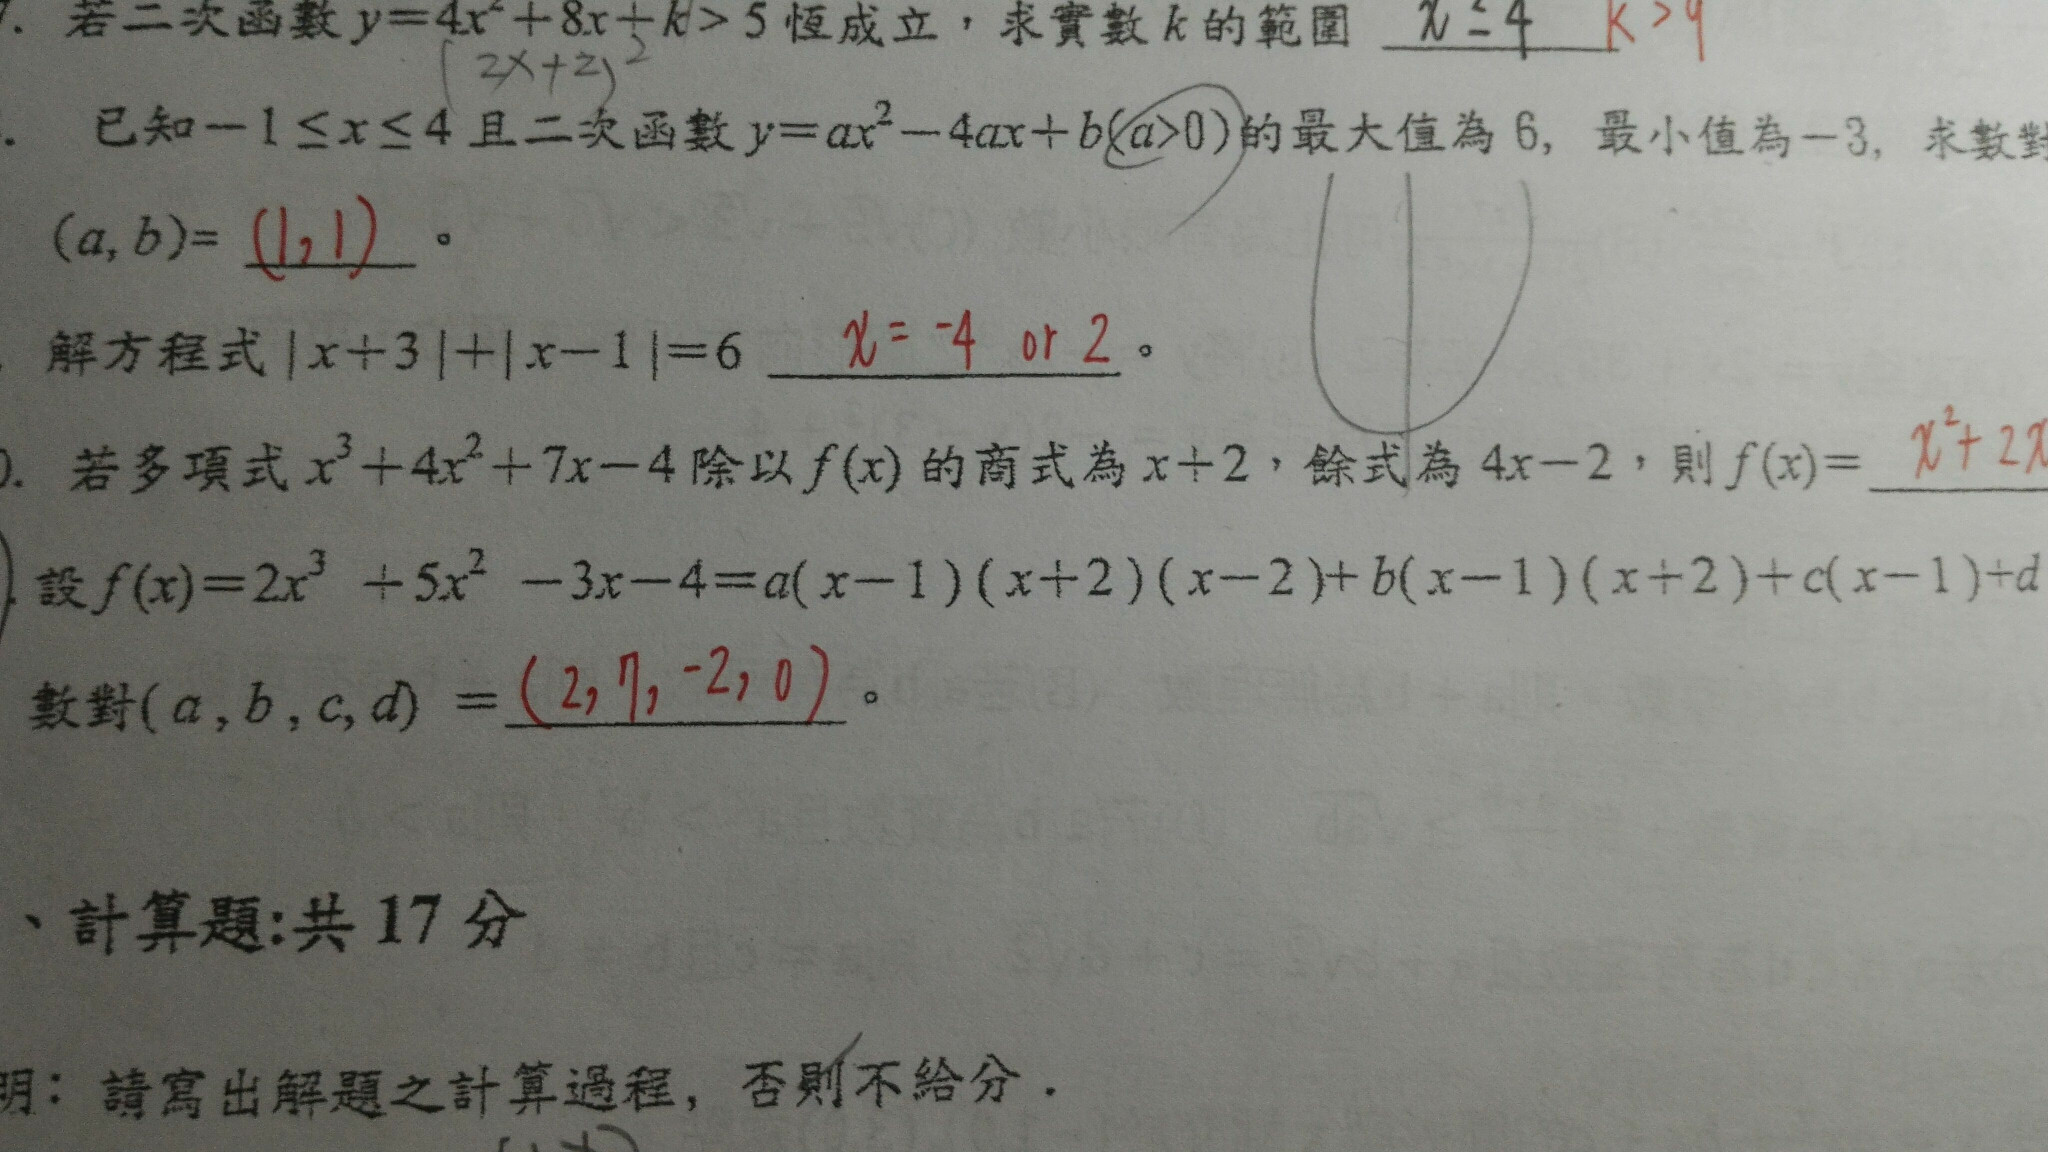 7. 若二次函數 y=4x²+8x+k>5 恆成立，求實數 k 的範圍 x=4 k>9
(2x+2)²
. 已知-1≤x≤4 且二次函數 y=ax²-4ax+b(a>0)的最大值為 6, 最小值為-3, 求數對
(a, b)= (1,1) 。
. 解方程式|x+3|+|x-1|=6 x=-4 or 2 。
0. 若多項式 x³+4x²+7x-4 除以 f(x) 的商式為 x+2，餘式為 4x-2，則 f(x)= x²+2x
. 設 f(x)=2x³ +5x² -3x-4=a(x-1)(x+2)(x-2)+b(x-1)(x+2)+c(x-1)+d
數對(a,b,c,d) =(2,7,-2,0)。
、計算題:共 17 分
明: 請寫出解題之計算過程, 否則不給分.